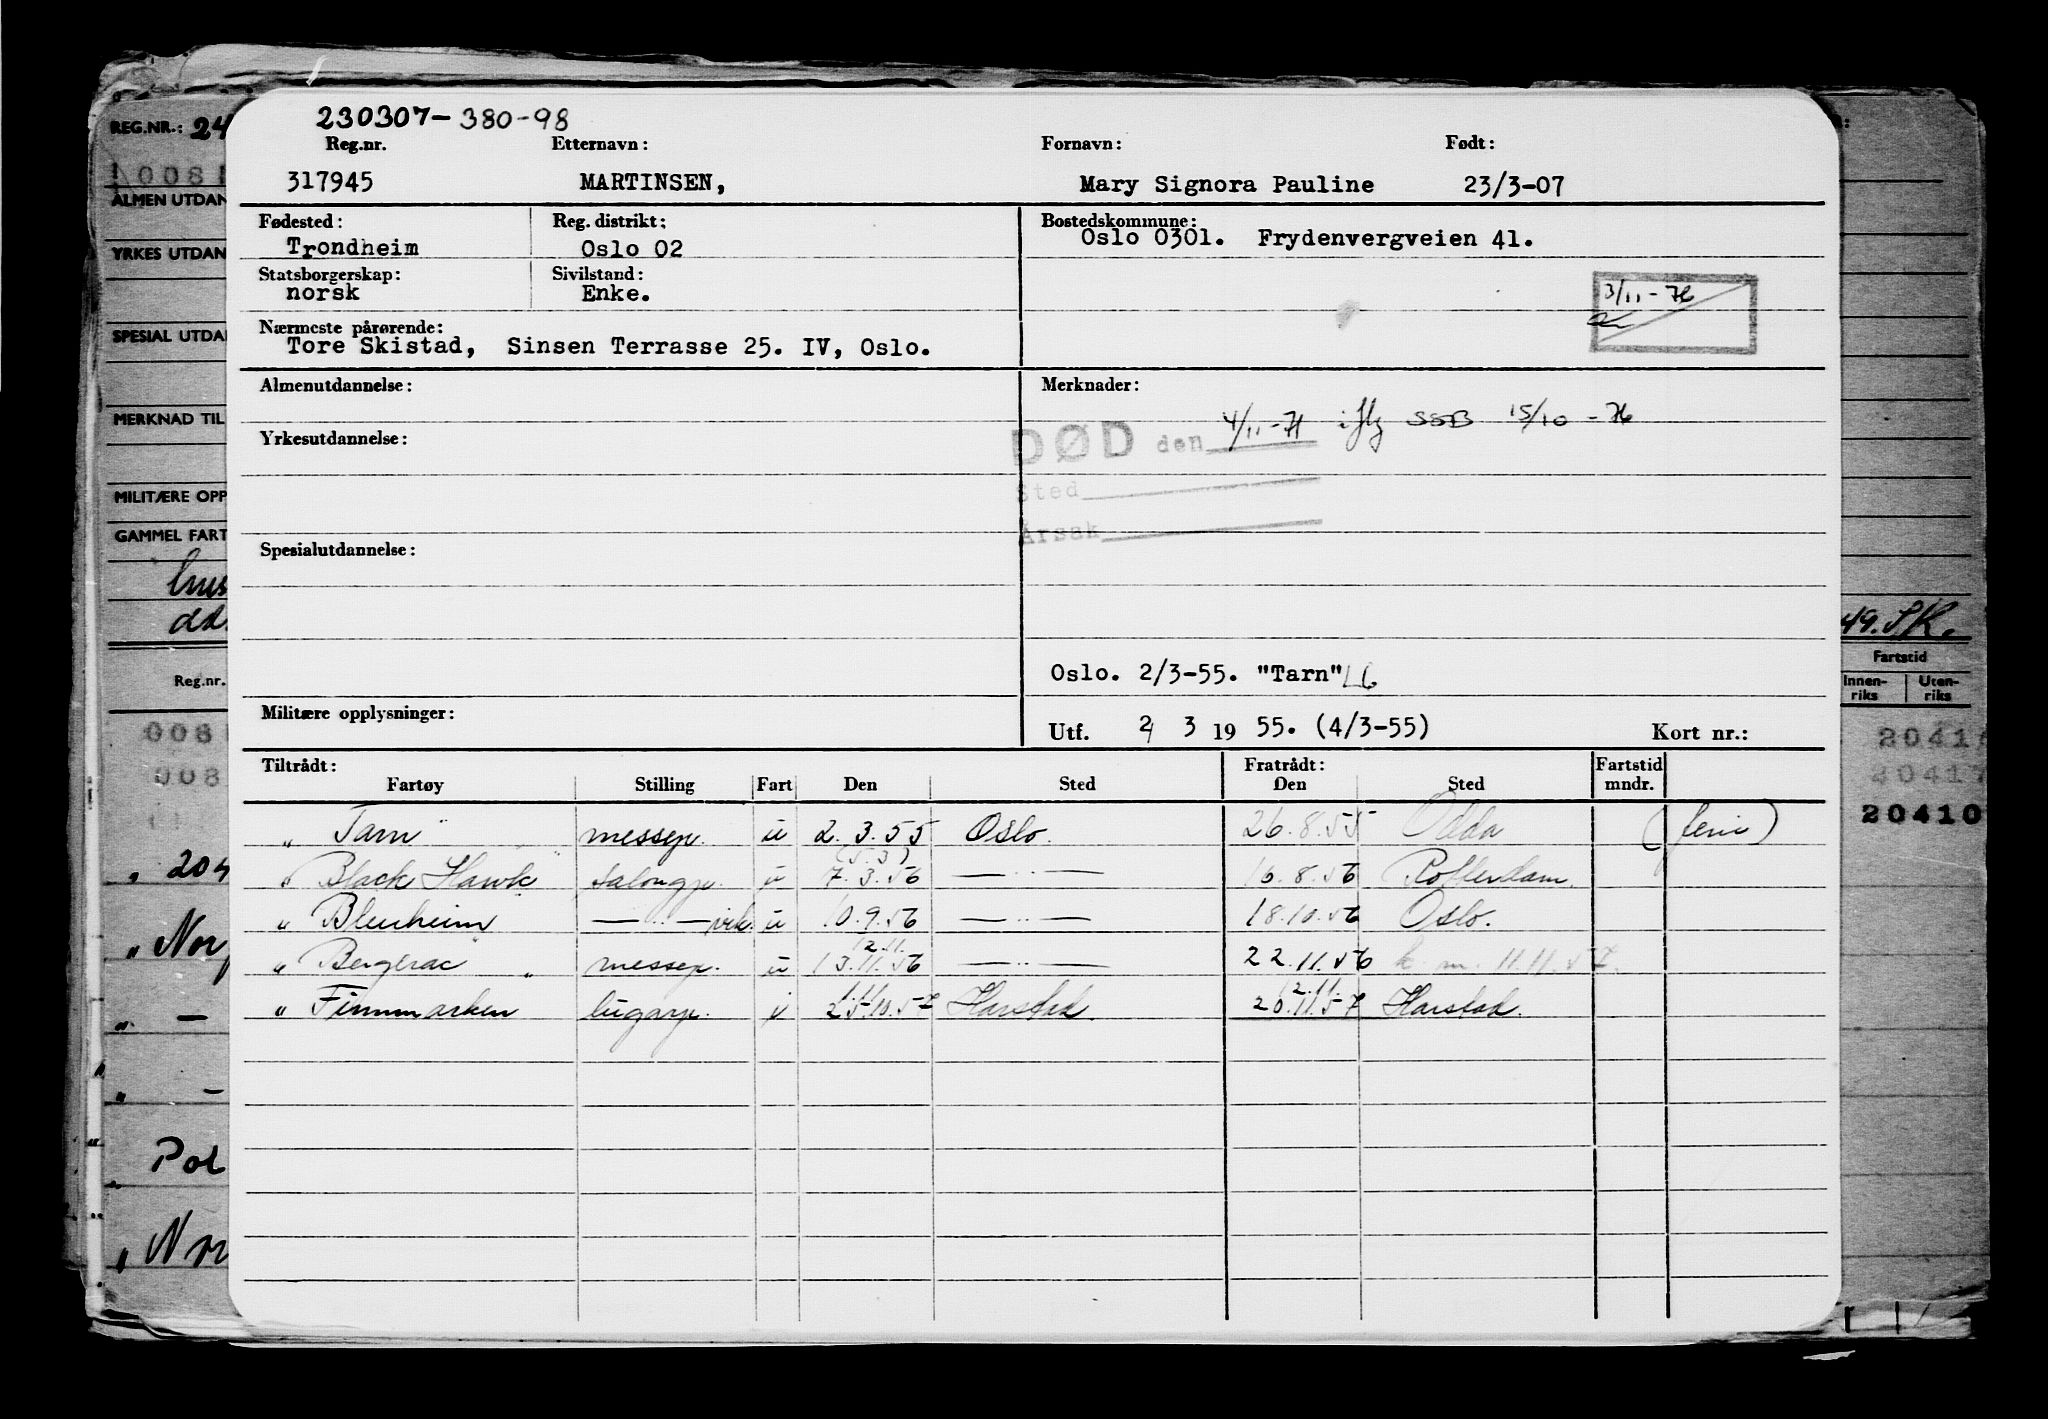 230307-380-98
Reg.nr. Etternavn: Fornavn: Født:
317945 MARTINSEN, Mary Signora Pauline 23/3-07
Fødested: Reg. distrikt: Bostedskommune:
Trondheim Oslo 02 Oslo 0301. Frydenvergveien 41.
Statsborgerskap: Sivilstand:
norsk Enke.
3/11-76
Nærmeste pårørende:
Tore Skistad, Sinsen Terrasse 25. IV, Oslo.
Almenutdannelse: Merknader:
DØD den 4/11-71 iflg SSB 15/10-76
Yrkesutdannelse:
Sted
Årsak
Spesialutdannelse:
Oslo. 2/3-55. "Tarn"
Militære opplysninger:
Utf. 2/ 3 19 55. (4/3-55) Kort nr.:
Tiltrådt: Fratrådt: Fartstid
Fartøy Stilling Fart Den Sted Den Sted mndr.
"Tarn" messep. u 2.3.55 Oslo. 26.8.55 Odda (ferie)
(5.3)
"Black Hawk" salongp. u 7.3.56 — " — 16.8.56 Rotterdam.
"Blenheim — " — vik. u 10.9.56 — " — 18.10.56 Oslo.
12.11.
"Bergerac" messep. u 13.11.56 — " — 22.11.56 k. m. 11.11.57.
1.11 12.11.
"Finnmarken lugarp. i 25.10.57 Harstad. 20.11.57 Harstad.
REG.NR.: 24
0081
ALMEN UTDAN
YRKES UTDAN
SPESIAL UTDA
MERKNAD TIL
MILITÆRE OPP
GAMMEL FART
Reg.nr.
008
008
204
Nor
Pol
49. SK.
Fartstid
Innen-riks Uten-riks
2041
20417
20410